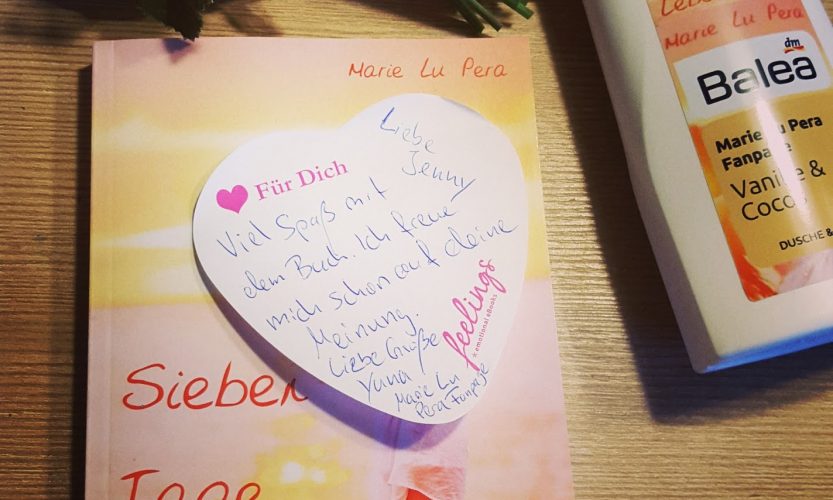 Marie Lu Pera
Liebe
Jenny
Für Dich
Viel Spaß mit
dem Buch. Ich freue
mich schon auf deine
Meinung.
Liebe Grüße
Yuna
Marie Lu
Pera Fanpage
feelings
emotional eBooks
Sieben
Tage
Marie Lu Pera
dm
Balea
Marie Lu Pera
Fanpage
Vanille &
Cocos
DUSCHE &